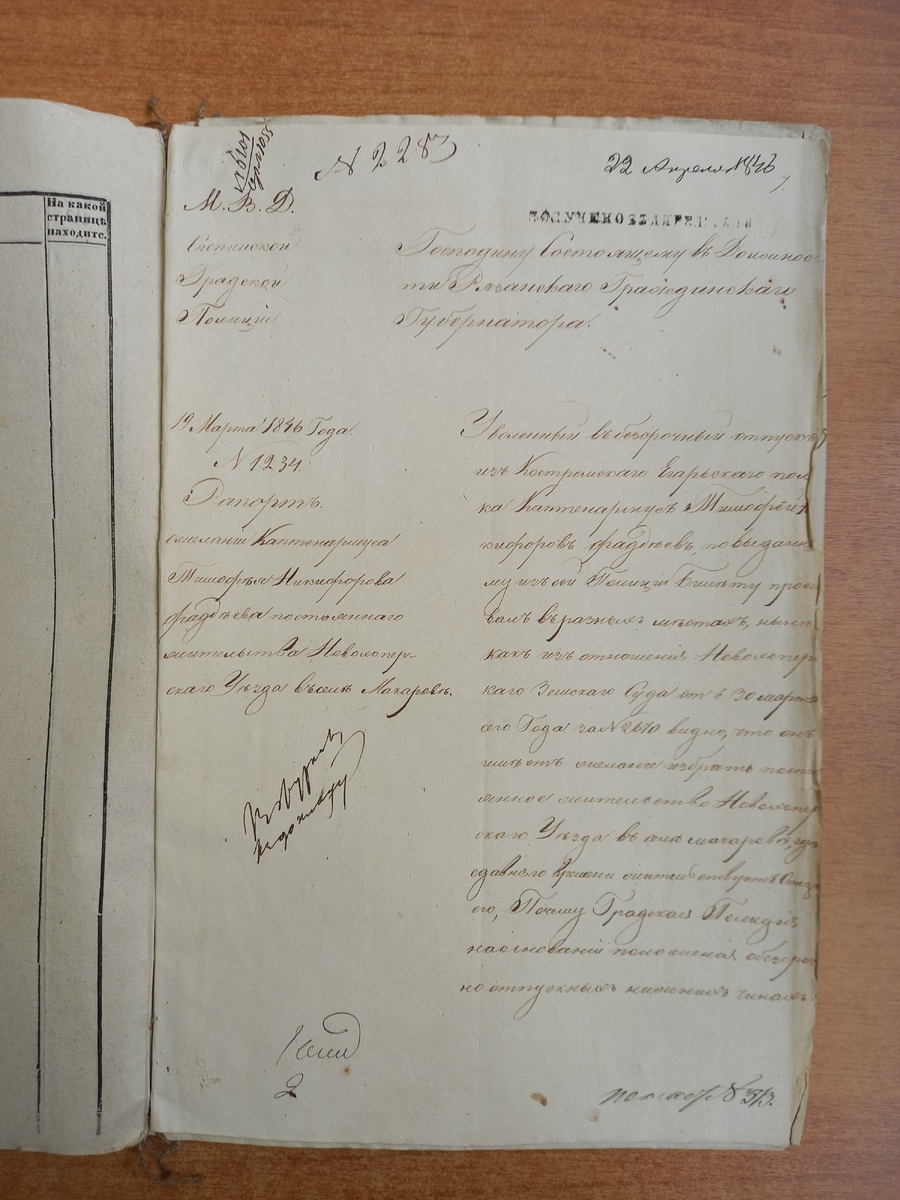 На какой
страницѣ
находите.
№ 2283
22 Апреля 1846
М. В. Д.
ПОЛУЧЕНО
Скопинской
Градской
Полиціи
Господину Состоящему въ Должнос
ти Рязанскаго Гражданскаго
Губернатора.
19 Марта 1846 Года.
№ 1234.
Рапортъ.
желаніи Каптенармуса
Тимофѣя Никифорова
Фадѣева постояннаго
жительства Новохопер-
скаго Уѣзда въ селѣ Макаровѣ.
Уволенный въ безсрочный отпускъ
изъ Костромскаго Егарьскаго пол
ка Каптенармусъ Тимофѣй Н
кифоровъ Фадѣевъ, по выданно
му изъ сей Полиціи Билѣту прож
валъ въ разныхъ мѣстахъ, нынѣ
какъ изъ отношенія Новохопер
каго Земскаго Суда отъ 30 марта
сего Года за № 2670 видно, что онъ
имѣетъ желаніе избрать посто
янное жительство Новохопер
скаго Уѣзда въ селѣ Макаровѣ, гдѣ
съ давняго времени жительствуетъ
его, Почему Градская Полиція
на основаніи положенія о безсроч
но отпускныхъ нижнихъ чинахъ
2
№ 573.